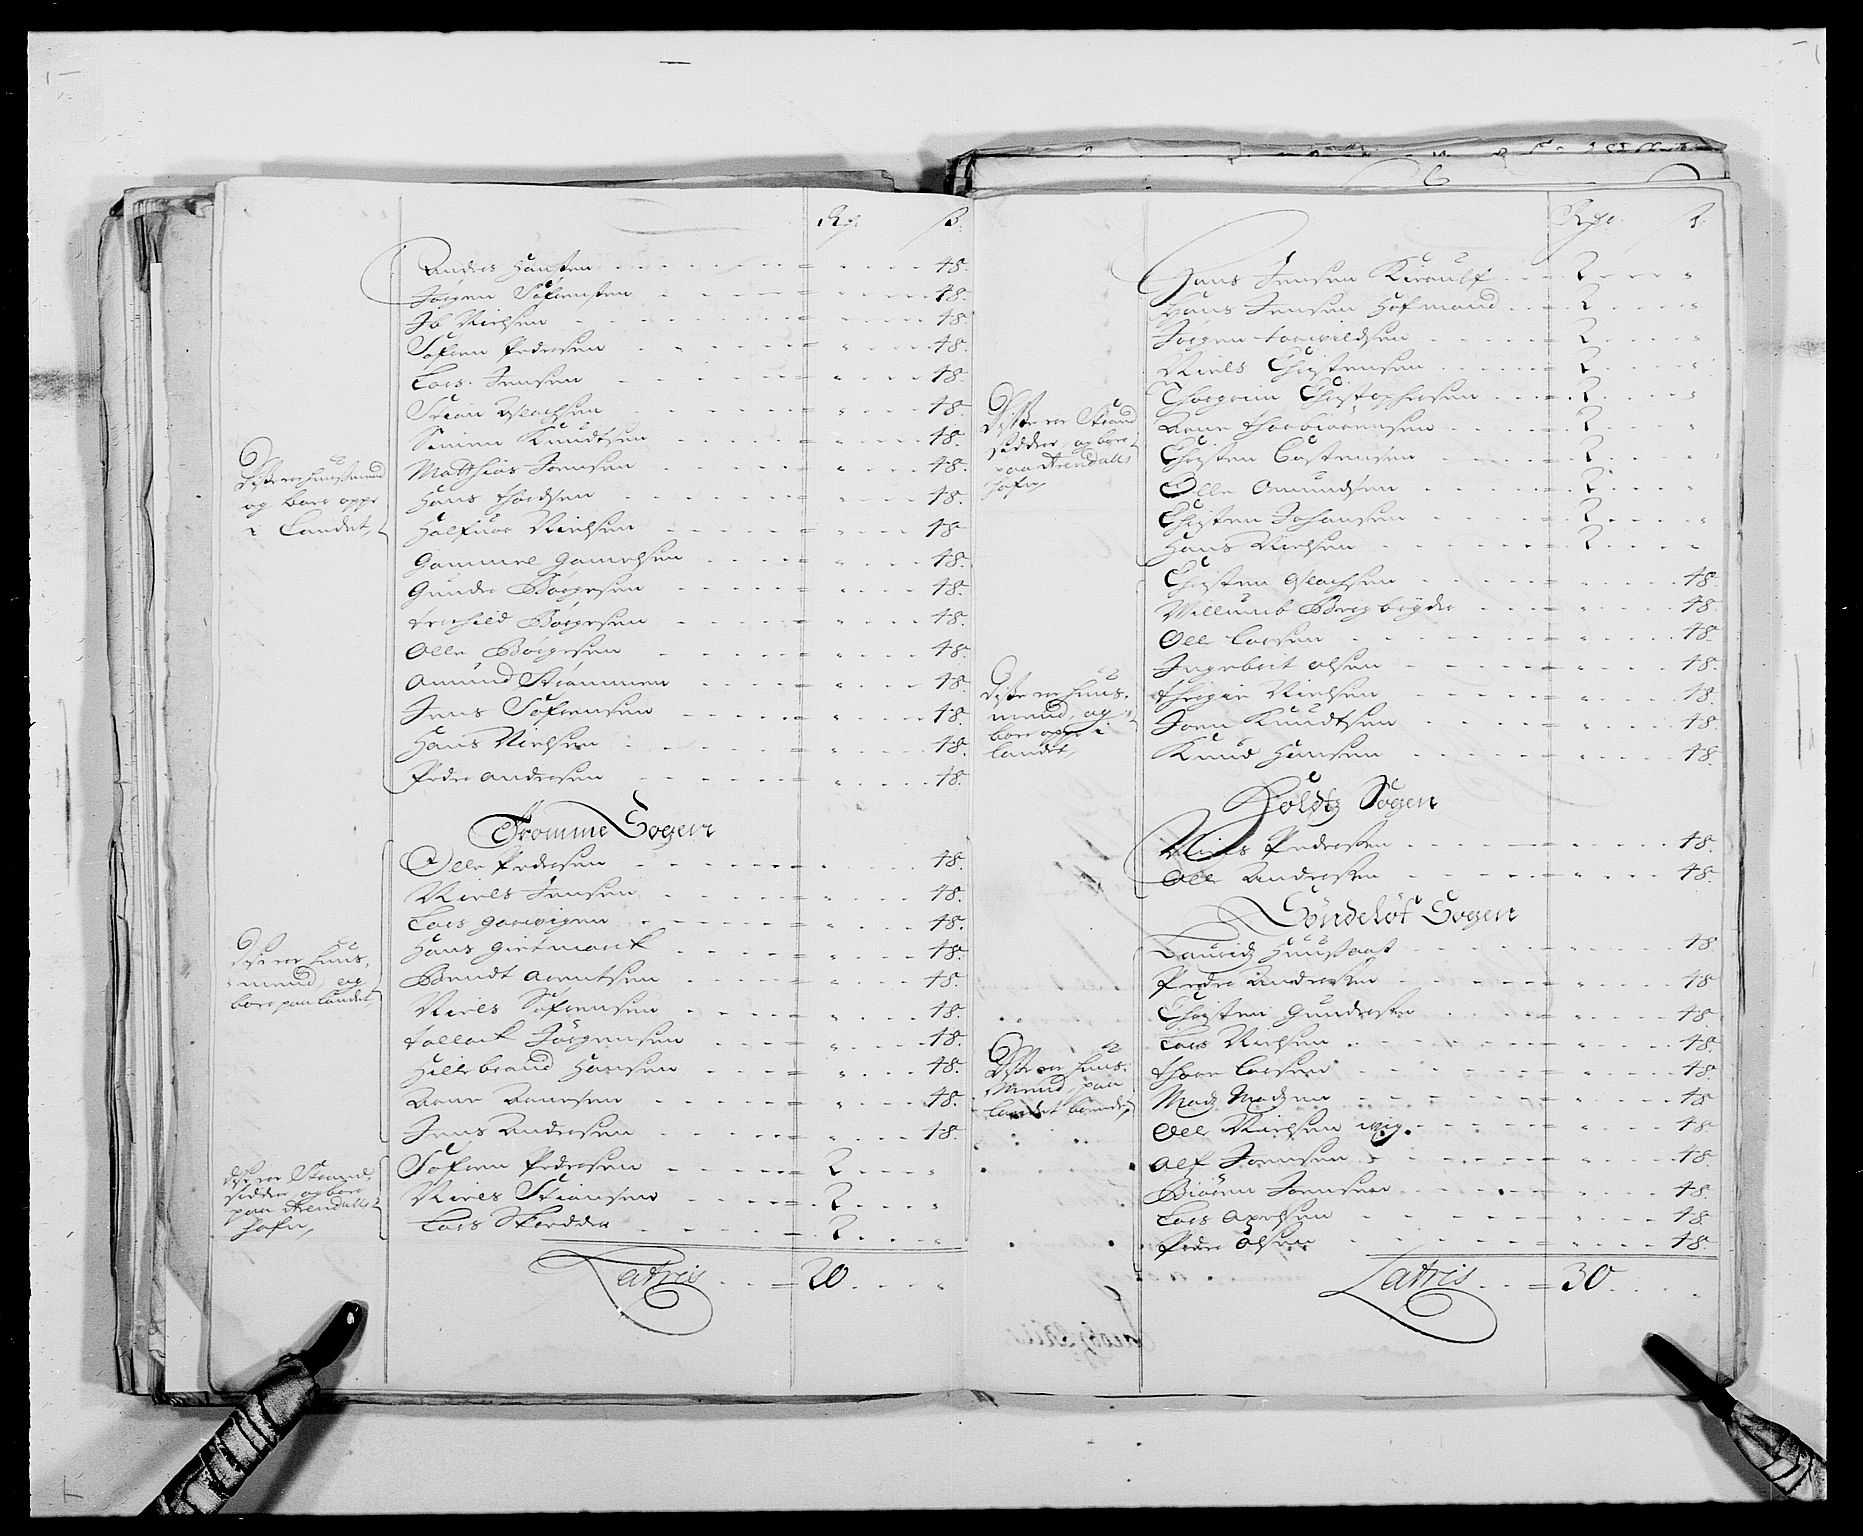 Rdr. ß.
Anders Hansen 48.
Jørgen Søfrensen 48.
Ib Nielsen 48.
Søfren Pedersen 48.
Lars Jensen 48.
Strian Aslachsen 48.
Simen Knudtsen 48.
Matthias Joensen 48.
Hans Thordsen 48.
Halfuor Nielsen 48
Gammel Gamelsen 48.
Gunder Børgesen 48.
Terchild Børgesen 48.
Olle Børgesen 48.
Amund Strømmen 48.
Jens Søfrensen 48.
Hans Nielsen 48.
Peder Andersen 48.
Disse er Huusmend
og boer oppe
i Landet,
Tromme Sogen
Olle Pedersen 48.
Niels Jensen 48.
Lars Garvigen 48.
Hans 48.
Berndt Arentsen 48.
Niels Søfrensen 48.
Tollack Jørgensen 48.
Hillebrand Hansen 48.
Arne Arnesen 48.
Jens Andersen 48.
Disse er Huus-
mend og
boer paa Landet,
Søfren Pedersen 2
Niels Stiansen 2
Lars Skredder 2
Disse er Strand
sidder og boer
paa Arendalls
hafn,
Latris 20
Rdr. ß.
Hans Jensen 2
Hans Jensen Hofmand 2
Jørgen Torvildsen 2
Niels Christensen 2
Thorgrim Christophersen 2
Arne Thorbiørnsen 2
Christen Carstensen 2
Olle Amundsen 2
Christen Johansen 2
Hans Nielsen 2
Disse er Strand
sidder, og boer
paa Arendalls
hafn,
Christen Aslachsen 48
Willumb 48.
Olle Larsen 48.
Ingebret Olsen 48.
Nielsen 48.
Joen Knudtsen 48.
Knud Hansen 48.
Disse er Huus-
mend, og
boer oppe i
landet,
Holdtz Sogen
Niels Pedersen 48.
Olle Andersen 48.
Søndeløf Sogen
Lauridz 48
Peder Andersen 48
Christen Gundersen 48.
Lars Nielsen 48.
Thore Larsen 48.
Madz Madsen 48
Olle Nielsen 48
Alf Joensen 48.
Biøren Joensen 48.
Lars Axelsen 48.
Peder Olsen 48.
Disse er Huus-
mend, paa
landet boende,
Latris 30